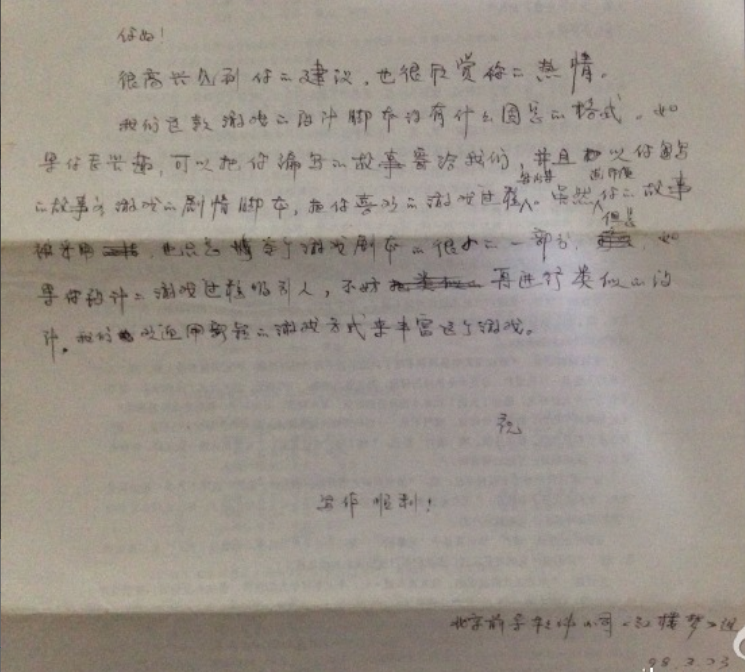 你好！
很高兴见到你的建议，也很欣赏你的热情。
我们这款游戏的设计脚本没有什么固定的格式。如
果你有兴趣，可以把你编写的故事寄给我们，并且以你自己
的故事为游戏的剧情脚本，把你喜欢的游戏过程 。虽然 你的故事
被采用 也只是 整个游戏剧本的很小的一部分， 但是 如
果你设计的游戏过程吸引人，不妨 再进行类似的设
计。我们欢迎用新颖的游戏方式来丰富这个游戏。
祝
写作顺利！
北京前导软件公司《红楼梦》
98.3.23